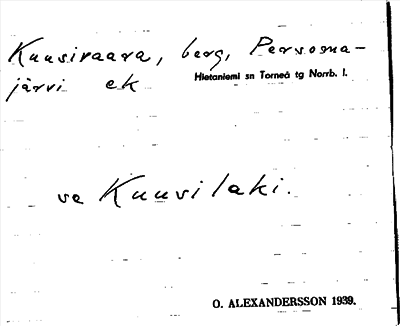 Kuusivaara, berg, Persoma-
järvi ek
Hietaniemi sn Torneå tg Norrb. l.
se Kuusilaki.
O. ALEXANDERSSON 1939.